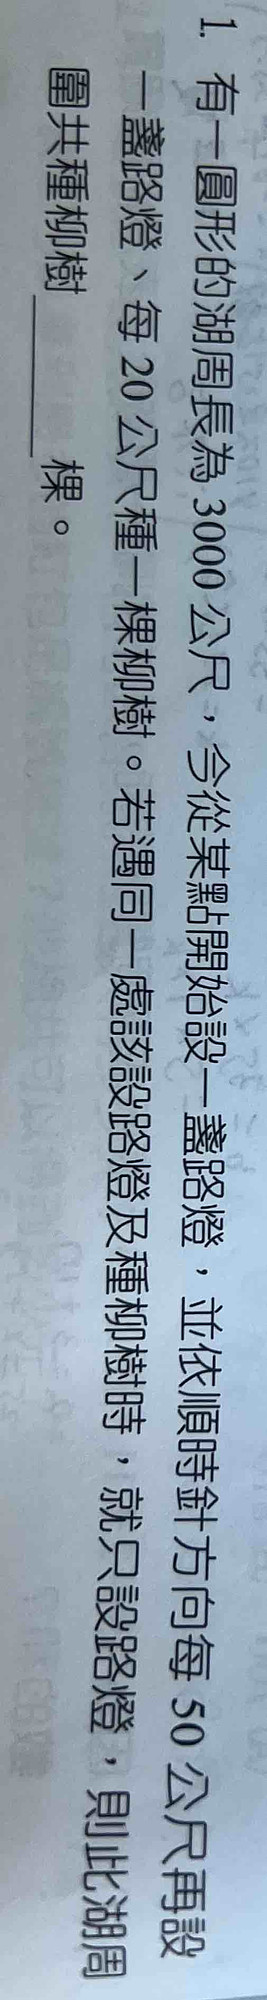 1. 有一圓形的湖周長為 3000 公尺，今從某點開始設一盞路燈，並依順時針方向每 50 公尺再設
一盞路燈、每 20 公尺種一棵柳樹。若遇同一處該設路燈及種柳樹時，就只設路燈，則此湖周
圍共種柳樹______棵。